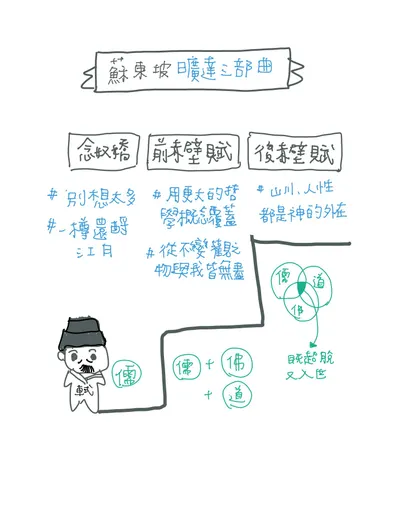 蘇東坡曠達三部曲
念奴嬌
前赤壁賦
後赤壁賦
#別想太多
#一樽還酹
江月
#用更大的哲
學概念覆蓋
#從不變觀之
物與我皆無盡
#山川、人性
都是神的外在
儒
道
佛
既超脫
又入世
儒 + 佛
+ 道
儒
軾